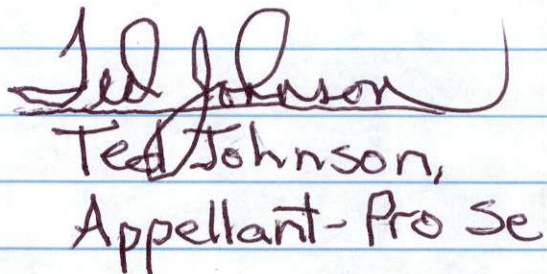 Ted Johnson
Ted Johnson,
Appellant-Pro Se